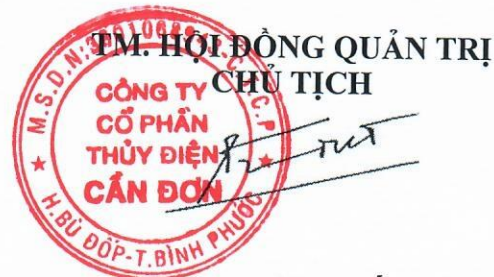 TM. HỘI ĐỒNG QUẢN TRỊ
CHỦ TỊCH
CÔNG TY
CỔ PHẦN
THỦY ĐIỆN
CẦN ĐƠN
H.BÙ ĐỐP-T.BÌNH PHƯỚC